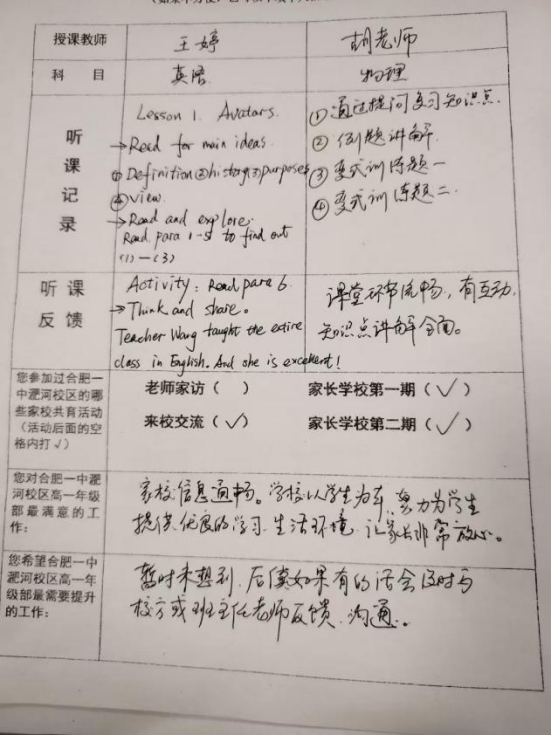 授课教师 王婷 胡老师
科目 英语 物理
听课记录
Lesson 1. Avatars.
→Read for main ideas.
①Definition②history③purposes
④view.
→Read and explore.
Read para 1-5 to find out
(1)-(3)
①通过提问复习知识点.
②例题讲解.
③变式训练题一
④变式训练题二.
听课反馈
Activity: Read para 6.
→Think and share.
Teacher Wang taught the entire
class in English. And she is excellent!
课堂环节流畅,有互动.
知识点讲解全面。
您参加过合肥一
中淝河校区的哪
些家校共育活动
(活动后面的空
格内打√)
老师家访( ) 家长学校第一期(√)
来校交流(√) 家长学校第二期(√)
您对合肥一中淝
河校区高一年级
部最满意的工
作:
家校信息通畅。学校以学生为本,努力为学生
提供优良的学习、生活环境,让家长非常放心。
您希望合肥一中
淝河校区高一年
级部最需要提升
的工作:
暂时未想到,后续如果有的话会及时与
校方或班主任老师反馈、沟通。